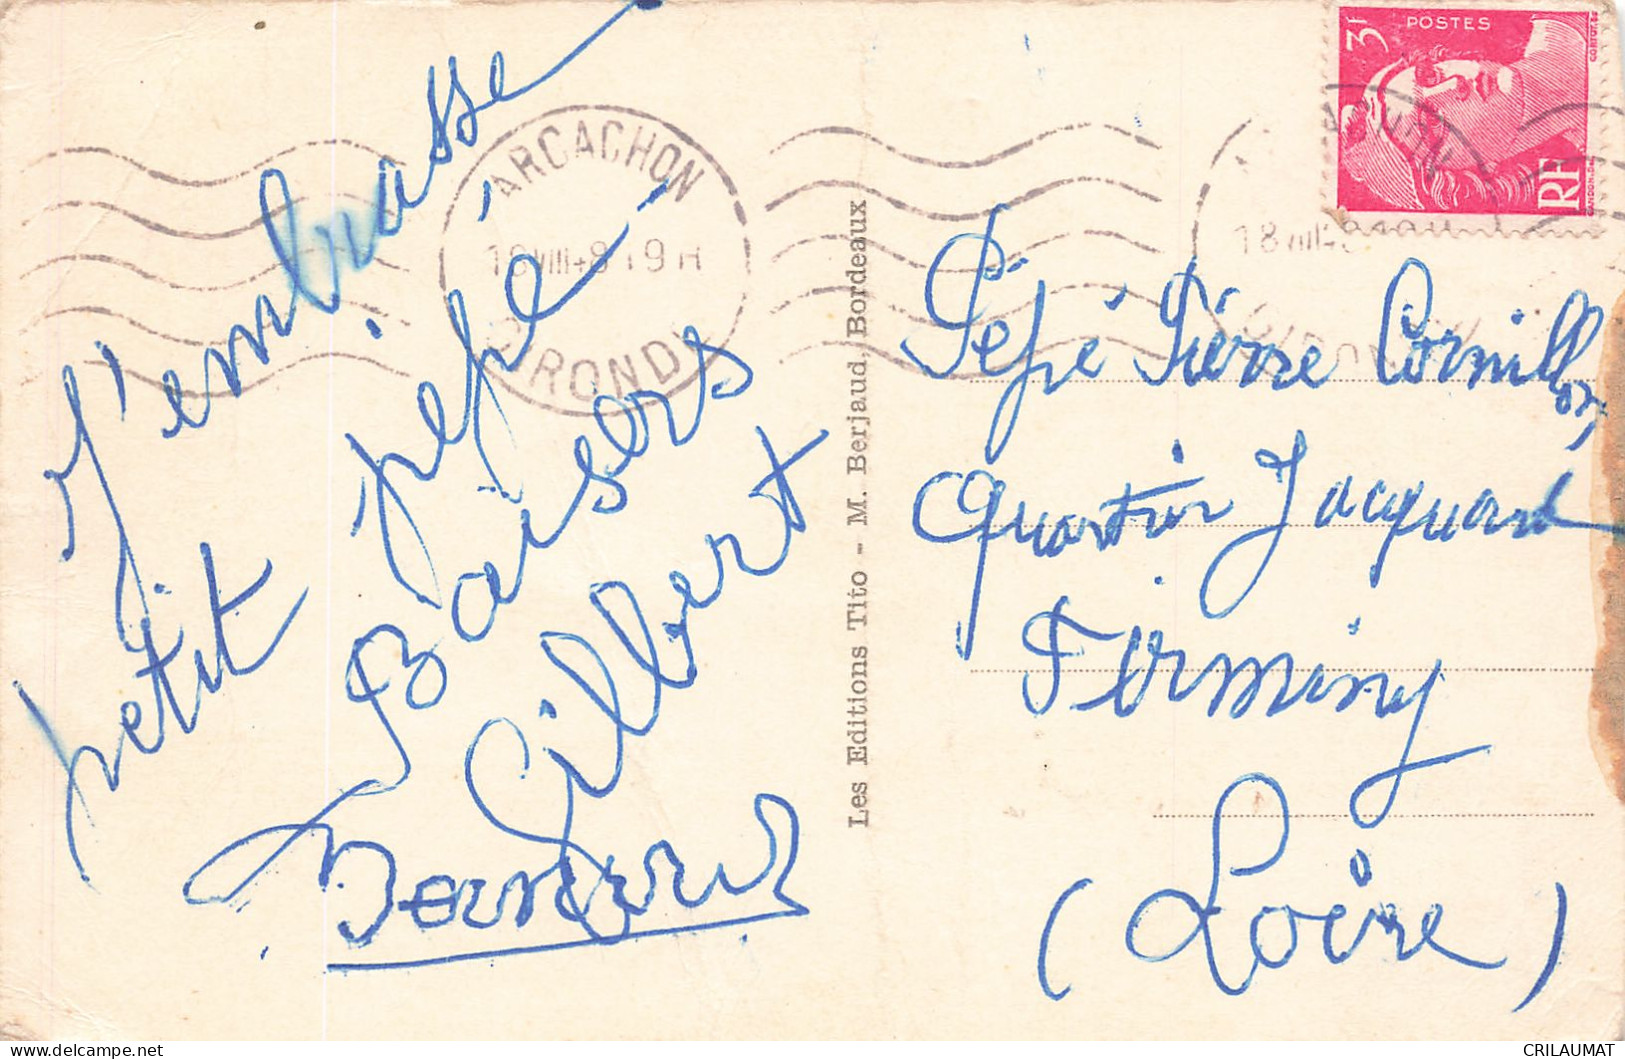 J'embrasse
petit pépé
Baisers
Gilbert
ARCACHON
18 VIII 48 19 H
GIRONDE
Les Editions Tito - M. Berjaud, Bordeaux
3F
POSTES
RF
18 VIII
Pépé Pierre Cornillon
Quartier Jacquard
Firminy
(Loire)
CRILAUMAT